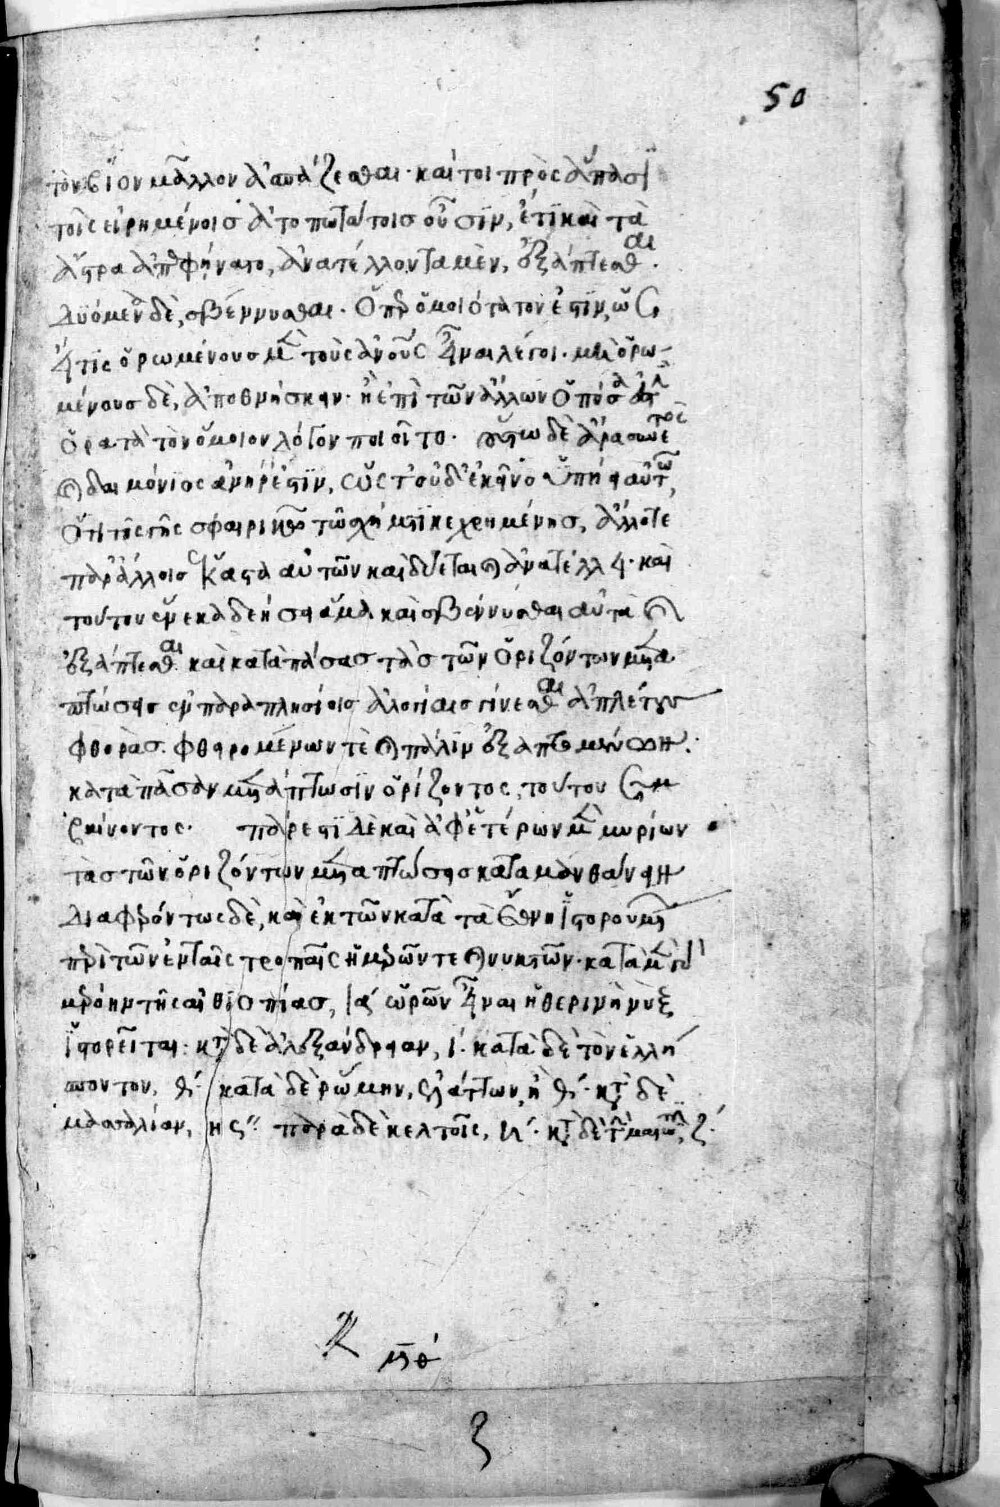 50
τὸν βίον μᾶλλον ἀσπάζεσθαι· καί τοι πρὸς ἅπασϊ
τοῖς εἰρημένοις ἀτοπωτάτοις οὖσϊν, ἔτϊ καὶ τὰ
ἄστρα ἀπεφήνατο, ἀνατέλλοντα μὲν, ἐξάπτεσθαι.
δυόμενα δὲ, σβέννυσθαι. ὅπερ ὁμοιότατόν ἐστϊν, ὡς
εἴ τϊς ὁρωμένους μὲν τοὺς ἀνους εἶναι λέγοι. μὴ ὁρω-
μένους δὲ, ἀποθνήσκειν. ἢ ἐπὶ τῶν ἄλλων ὁπόσα
ὁρατὰ τὸν ὅμοιον λόγον ποιοῖτο. οὕτω δὲ
δαιμόνιος ἀνήρ ἐστϊν, ὡς τ' οὐδ' ἐκεῖνο ὑπῄει αὐτῷ,
ὅτι τῆς γῆς σφαιρικῷ τῷ σχήματϊ κεχρημένης, ἄλλοτε
παρ' ἄλλοις ἕκαστα αὐτῶν καὶ δύεται καὶ ἀνατέλλει. καὶ
τούτου ἕνεκα δεήσει ἅμα καὶ σβέννυσθαι αὐτὰ καὶ
ἐξάπτεσθαι καὶ κατὰ πάσας τὰς τῶν ὁριζόντων μετα
πτώσεις ἐν παραπλησίοις ἀλογίαις γίνεσθαι ἀπλέτους
φθορὰς. φθειρομένων τὲ καὶ πάλϊν ἐξαπτομένων.
κατὰ πᾶσαν μετάπτωσϊν ὁρίζοντος, τούτου
πάρεστϊ δὲ καὶ ἀφ' ἑτέρων μὲν μυρίων
τὰς τῶν ὁριζόντων μεταπτώσεις καταμανθάνειν
διαφερόντως δὲ, καὶ ἐκ τῶν κατὰ τὰ ἔθνη ἱστορουμένων
περὶ τῶν ἐν ταῖς τροπαῖς ἡμερῶν τε καὶ νυκτῶν. κατὰ μὲν γὰρ
μερόην τῆς αἰθϊοπίας, ια ὡρῶν εἶναι ἡ θερινὴ νὺξ
ἱστορεῖται· κατὰ δὲ ἀλεξάνδρειαν, ι. κατὰ δὲ τὸν ἑλλή
σποντον, θ. κατὰ δὲ ῥώμην, ἐλάττων, ἢ θ. κατὰ δὲ
μασσαλίαν, η ς''. παρὰ δὲ κελτοῖς, η. κατὰ δὲ τὴν μαιῶτιν, ζ.